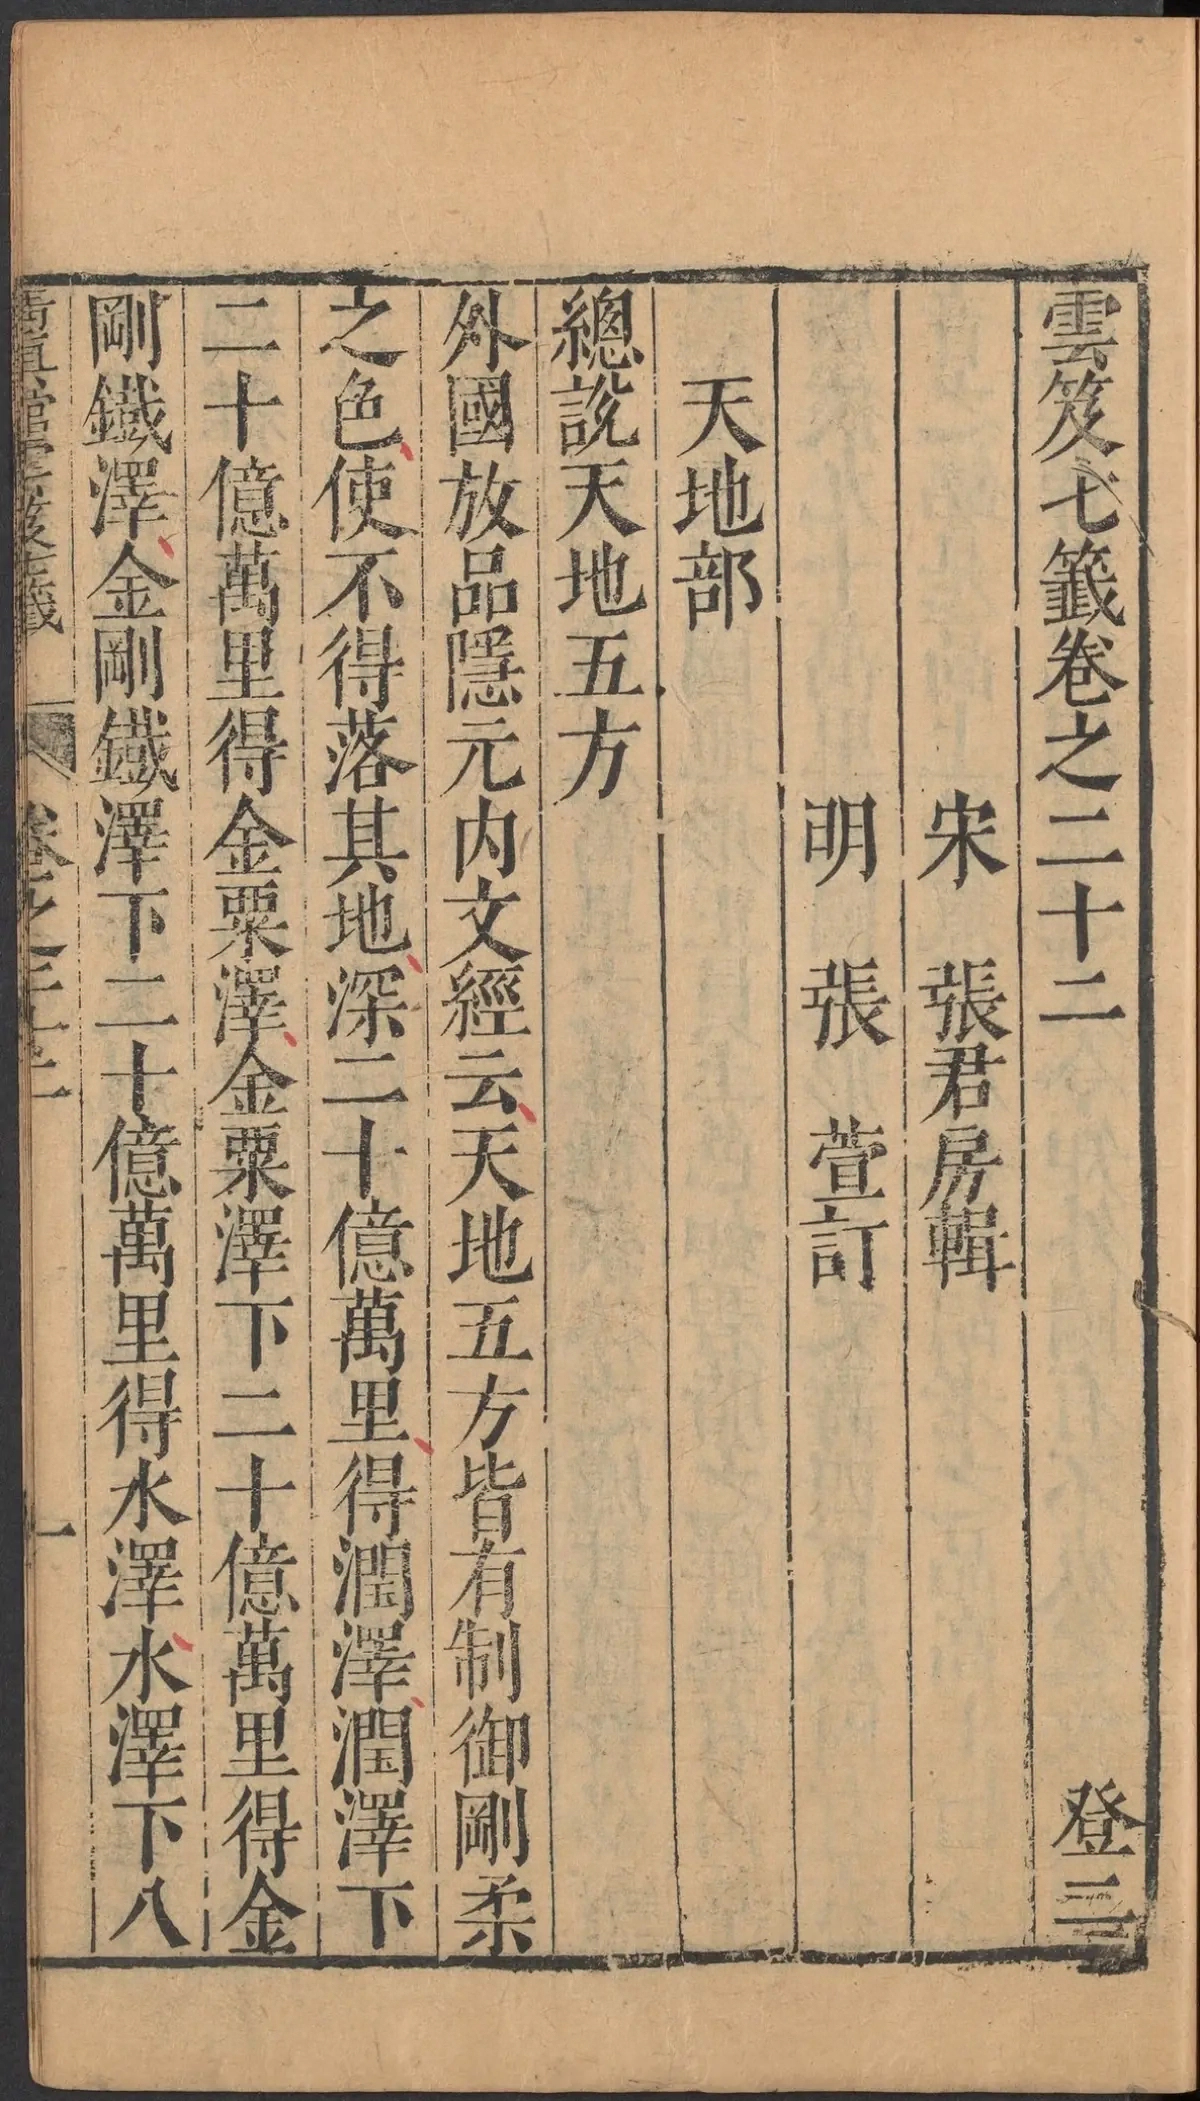 雲笈七籤卷之二十二 登三
宋 張君房輯
明 張 萱訂
天地部
總說天地五方
外國放品隱元内文經云天地五方皆有制御剛柔
之色使不得落其地深二十億萬里得潤澤潤澤下
二十億萬里得金粟澤金粟澤下二十億萬里得金
剛鐵澤金剛鐵澤下二十億萬里得水澤水澤下八
卷之二十二 一